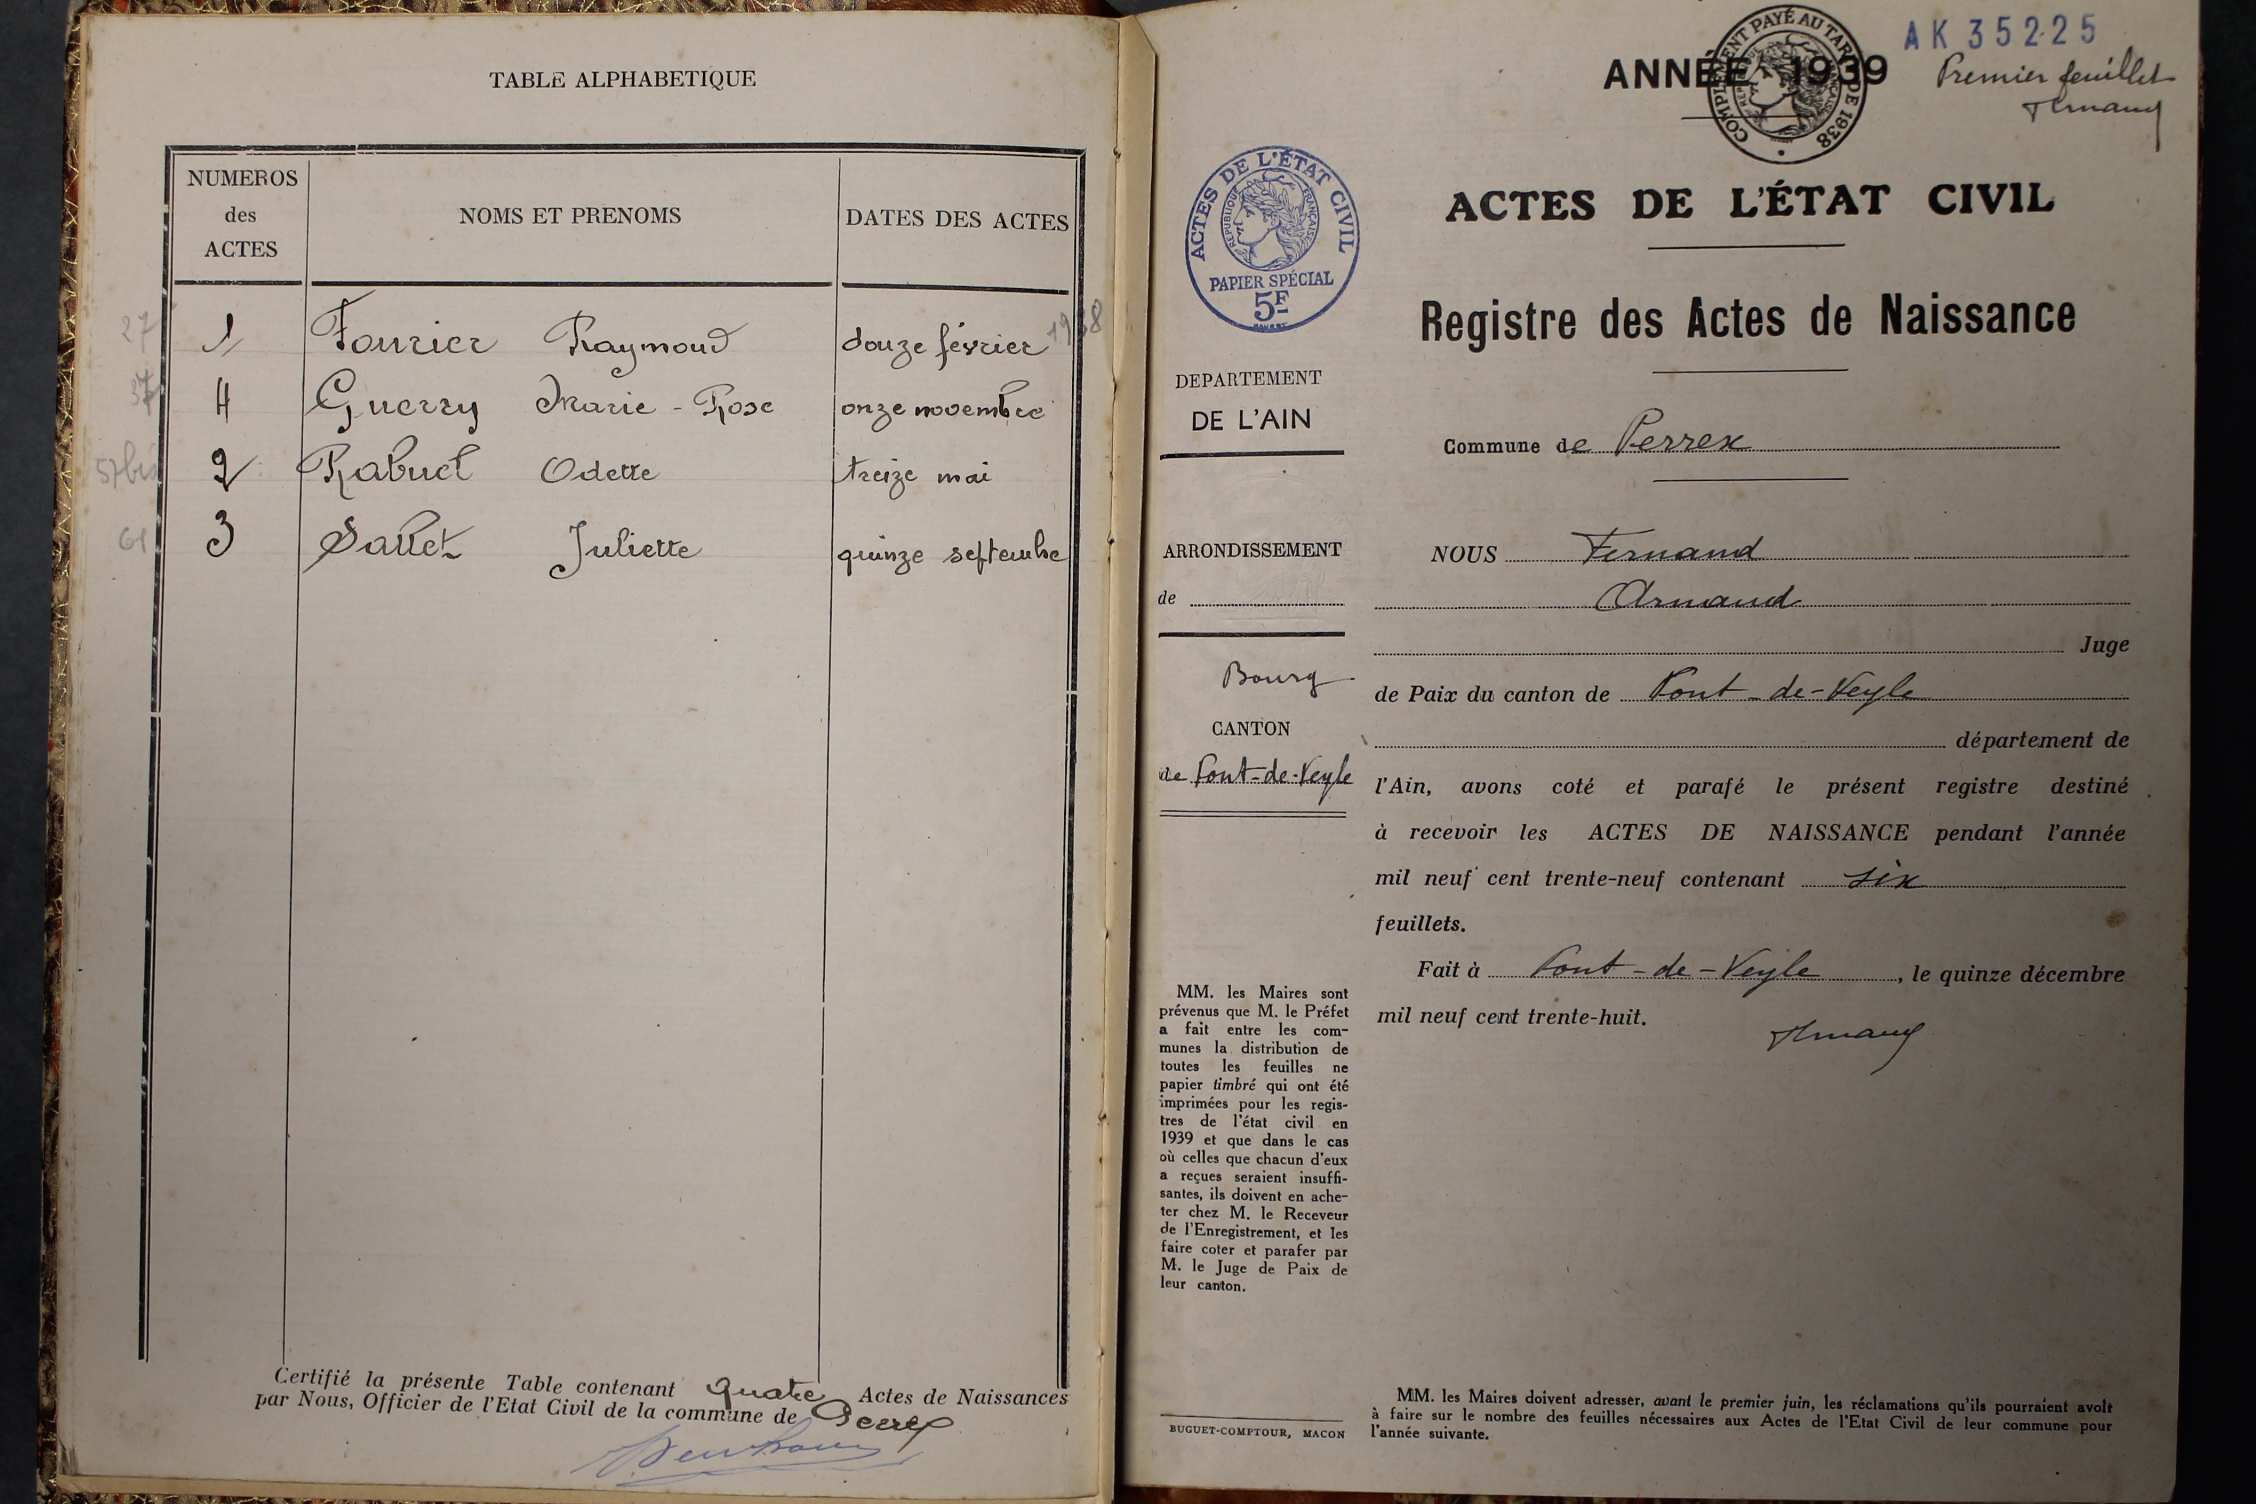 TABLE ALPHABETIQUE
NUMEROS
des
ACTES
NOMS ET PRENOMS
DATES DES ACTES
27 1 Fourier Raymond douze février 1938
37 4 Guerry Marie - Rose onze novembre
57bis 2 Rabuel Odette treize mai
61 3 Sallet Juliette quinze septembre
Certifié la présente Table contenant quatre Actes de Naissances
par Nous, Officier de l'Etat Civil de la commune de Perrex
AK 35225
Premier feuillet
COMPLÉMENT PAYÉ AU TARIF DE 1938
ANNÉE 1939
ACTES DE L'ÉTAT CIVIL
RÉPUBLIQUE FRANÇAISE
PAPIER SPÉCIAL
5F
ACTES DE L'ÉTAT CIVIL
Registre des Actes de Naissance
DEPARTEMENT
DE L'AIN
ARRONDISSEMENT
de
Bourg
CANTON
de Pont-de-Veyle
Commune de Perrex
NOUS Fernand
Arnaud
Juge
de Paix du canton de Pont-de-Veyle
département de
l'Ain, avons coté et parafé le présent registre destiné
à recevoir les ACTES DE NAISSANCE pendant l'année
mil neuf cent trente-neuf contenant six
feuillets.
Fait à Pont-de-Veyle, le quinze décembre
mil neuf cent trente-huit.
MM. les Maires sont
prévenus que M. le Préfet
a fait entre les com-
munes la distribution de
toutes les feuilles ne
papier timbré qui ont été
imprimées pour les regis-
tres de l'état civil en
1939 et que dans le cas
où celles que chacun d'eux
a reçues seraient insuffi-
santes, ils doivent en ache-
ter chez M. le Receveur
de l'Enregistrement, et les
faire coter et parafer par
M. le Juge de Paix de
leur canton.
BUGUET-COMPTOUR, MACON
MM. les Maires doivent adresser, avant le premier juin, les réclamations qu'ils pourraient avoit
à faire sur le nombre des feuilles nécessaires aux Actes de l'Etat Civil de leur commune pour
l'année suivante.